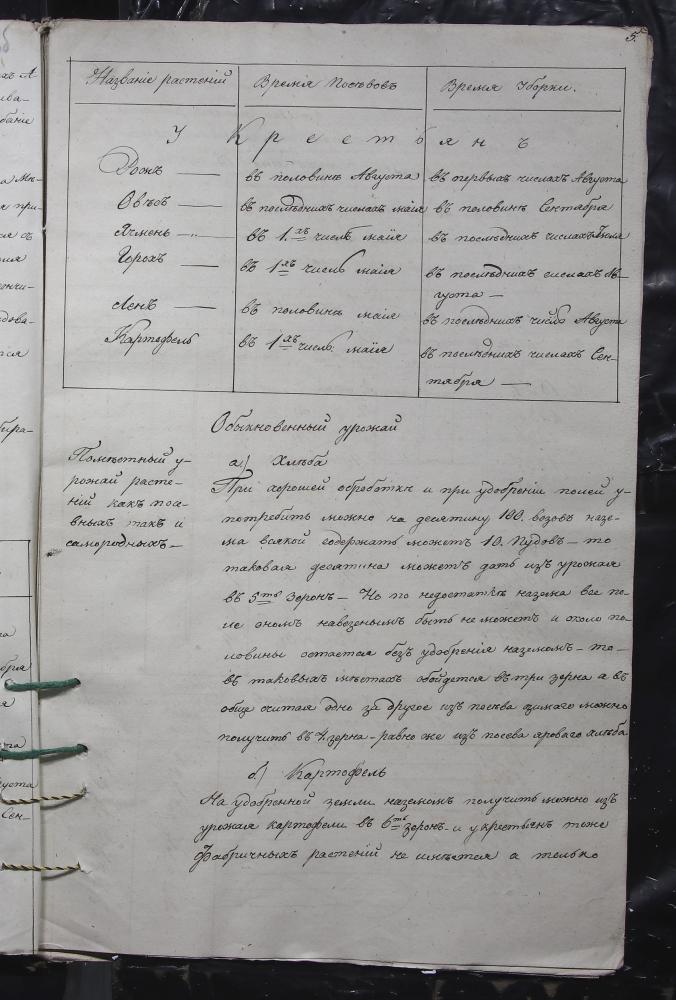 5.
Названіе растеній Время Посѣвовъ Время Уборки.
У Крестьянъ
Рожъ — въ половинѣ Августа въ первыхъ числахъ Августа
Овѣсъ — въ послѣднихъ числахъ маія въ половинѣ Сентября
Ячмень — въ 1.хъ числѣ маія въ послѣднихъ числахъ
Горохъ — въ 1хъ числѣ маія въ послѣднихъ числахъ Ав-
густа —
Ленъ — въ половинѣ маія въ послѣднихъ числѣ Августа
Картофель въ 1хъ числѣ маія въ послѣднихъ числахъ Сен-
тября —
Обыкновенный урожай
а) Хлѣба
Помѣстный у-
рожай расте-
ній какъ посе-
вныхъ такъ и
самородныхъ —
При хорошей обработки и при удобреніи полей у-
потребить можно на десятину 100. возовъ назе-
ма всякой содержать можетъ 10. Пудовъ — то
таковая десятина можетъ дать изъ урожая
въ 5ть зеронъ — Но по недостаткѣ назема все по-
ле ономъ навезенымъ быть не можетъ и около по-
ловины остается безъ удобренія наземомъ — то-
въ таковыхъ мѣстахъ обойдется въ три зерна а въ
обще считая одно за другое изъ посѣва озимаго можно
получить въ 4. зерна — равно же изъ посева яроваго хлѣба
б) Картофель
На удобренной земли наземомъ получить можно изъ
урожая картофели въ 6ть зеронъ — и у крестьянъ тоже
Фабричныхъ растеній не имѣется а только